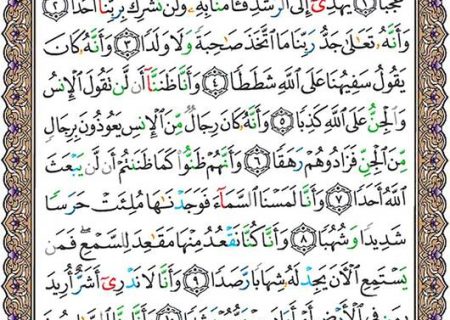 عَجَبًا ۝١ يَهْدِىٓ إِلَى ٱلرُّشْدِ فَـَٔامَنَّا بِهِۦ وَلَن نُّشْرِكَ بِرَبِّنَآ أَحَدًا ۝٢
وَأَنَّهُۥ تَعَـٰلَىٰ جَدُّ رَبِّنَا مَا ٱتَّخَذَ صَـٰحِبَةً وَلَا وَلَدًا ۝٣ وَأَنَّهُۥ كَانَ
يَقُولُ سَفِيهُنَا عَلَى ٱللَّهِ شَطَطًا ۝٤ وَأَنَّا ظَنَنَّآ أَن لَّن تَقُولَ ٱلْإِنسُ
وَٱلْجِنُّ عَلَى ٱللَّهِ كَذِبًا ۝٥ وَأَنَّهُۥ كَانَ رِجَالٌ مِّنَ ٱلْإِنسِ يَعُوذُونَ بِرِجَالٍ
مِّنَ ٱلْجِنِّ فَزَادُوهُمْ رَهَقًا ۝٦ وَأَنَّهُمْ ظَنُّوا۟ كَمَا ظَنَنتُمْ أَن لَّن يَبْعَثَ
ٱللَّهُ أَحَدًا ۝٧ وَأَنَّا لَمَسْنَا ٱلسَّمَآءَ فَوَجَدْنَـٰهَا مُلِئَتْ حَرَسًا
شَدِيدًا وَشُهُبًا ۝٨ وَأَنَّا كُنَّا نَقْعُدُ مِنْهَا مَقَـٰعِدَ لِلسَّمْعِ ۖ فَمَن
يَسْتَمِعِ ٱلْـَٔانَ يَجِدْ لَهُۥ شِهَابًا رَّصَدًا ۝٩ وَأَنَّا لَا نَدْرِىٓ أَشَرٌّ أُرِيدَ